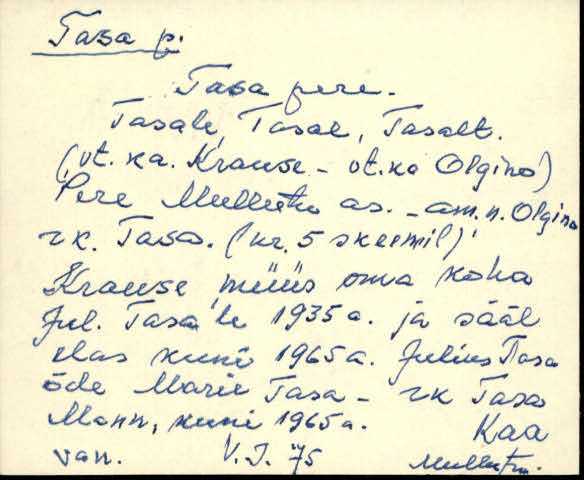 Tasa p.
Tasa pere.
Tasale, Tasal, Tasalt.
(vt. ka. Krause - vt. ka Olgino)
Pere Mullutu as. - am. n. Olgino
rk. Tasa. (nr. 5 skeemil)
Krause müüs oma koha
Jul. Tasa'le 1935 a. ja sääl
elas kuni 1965 a. Julius Tasa
õde Marie Tasa - rk Tasa
Mann, kuni 1965 a.
Kaa
van. V. J. 75 Mullutu.